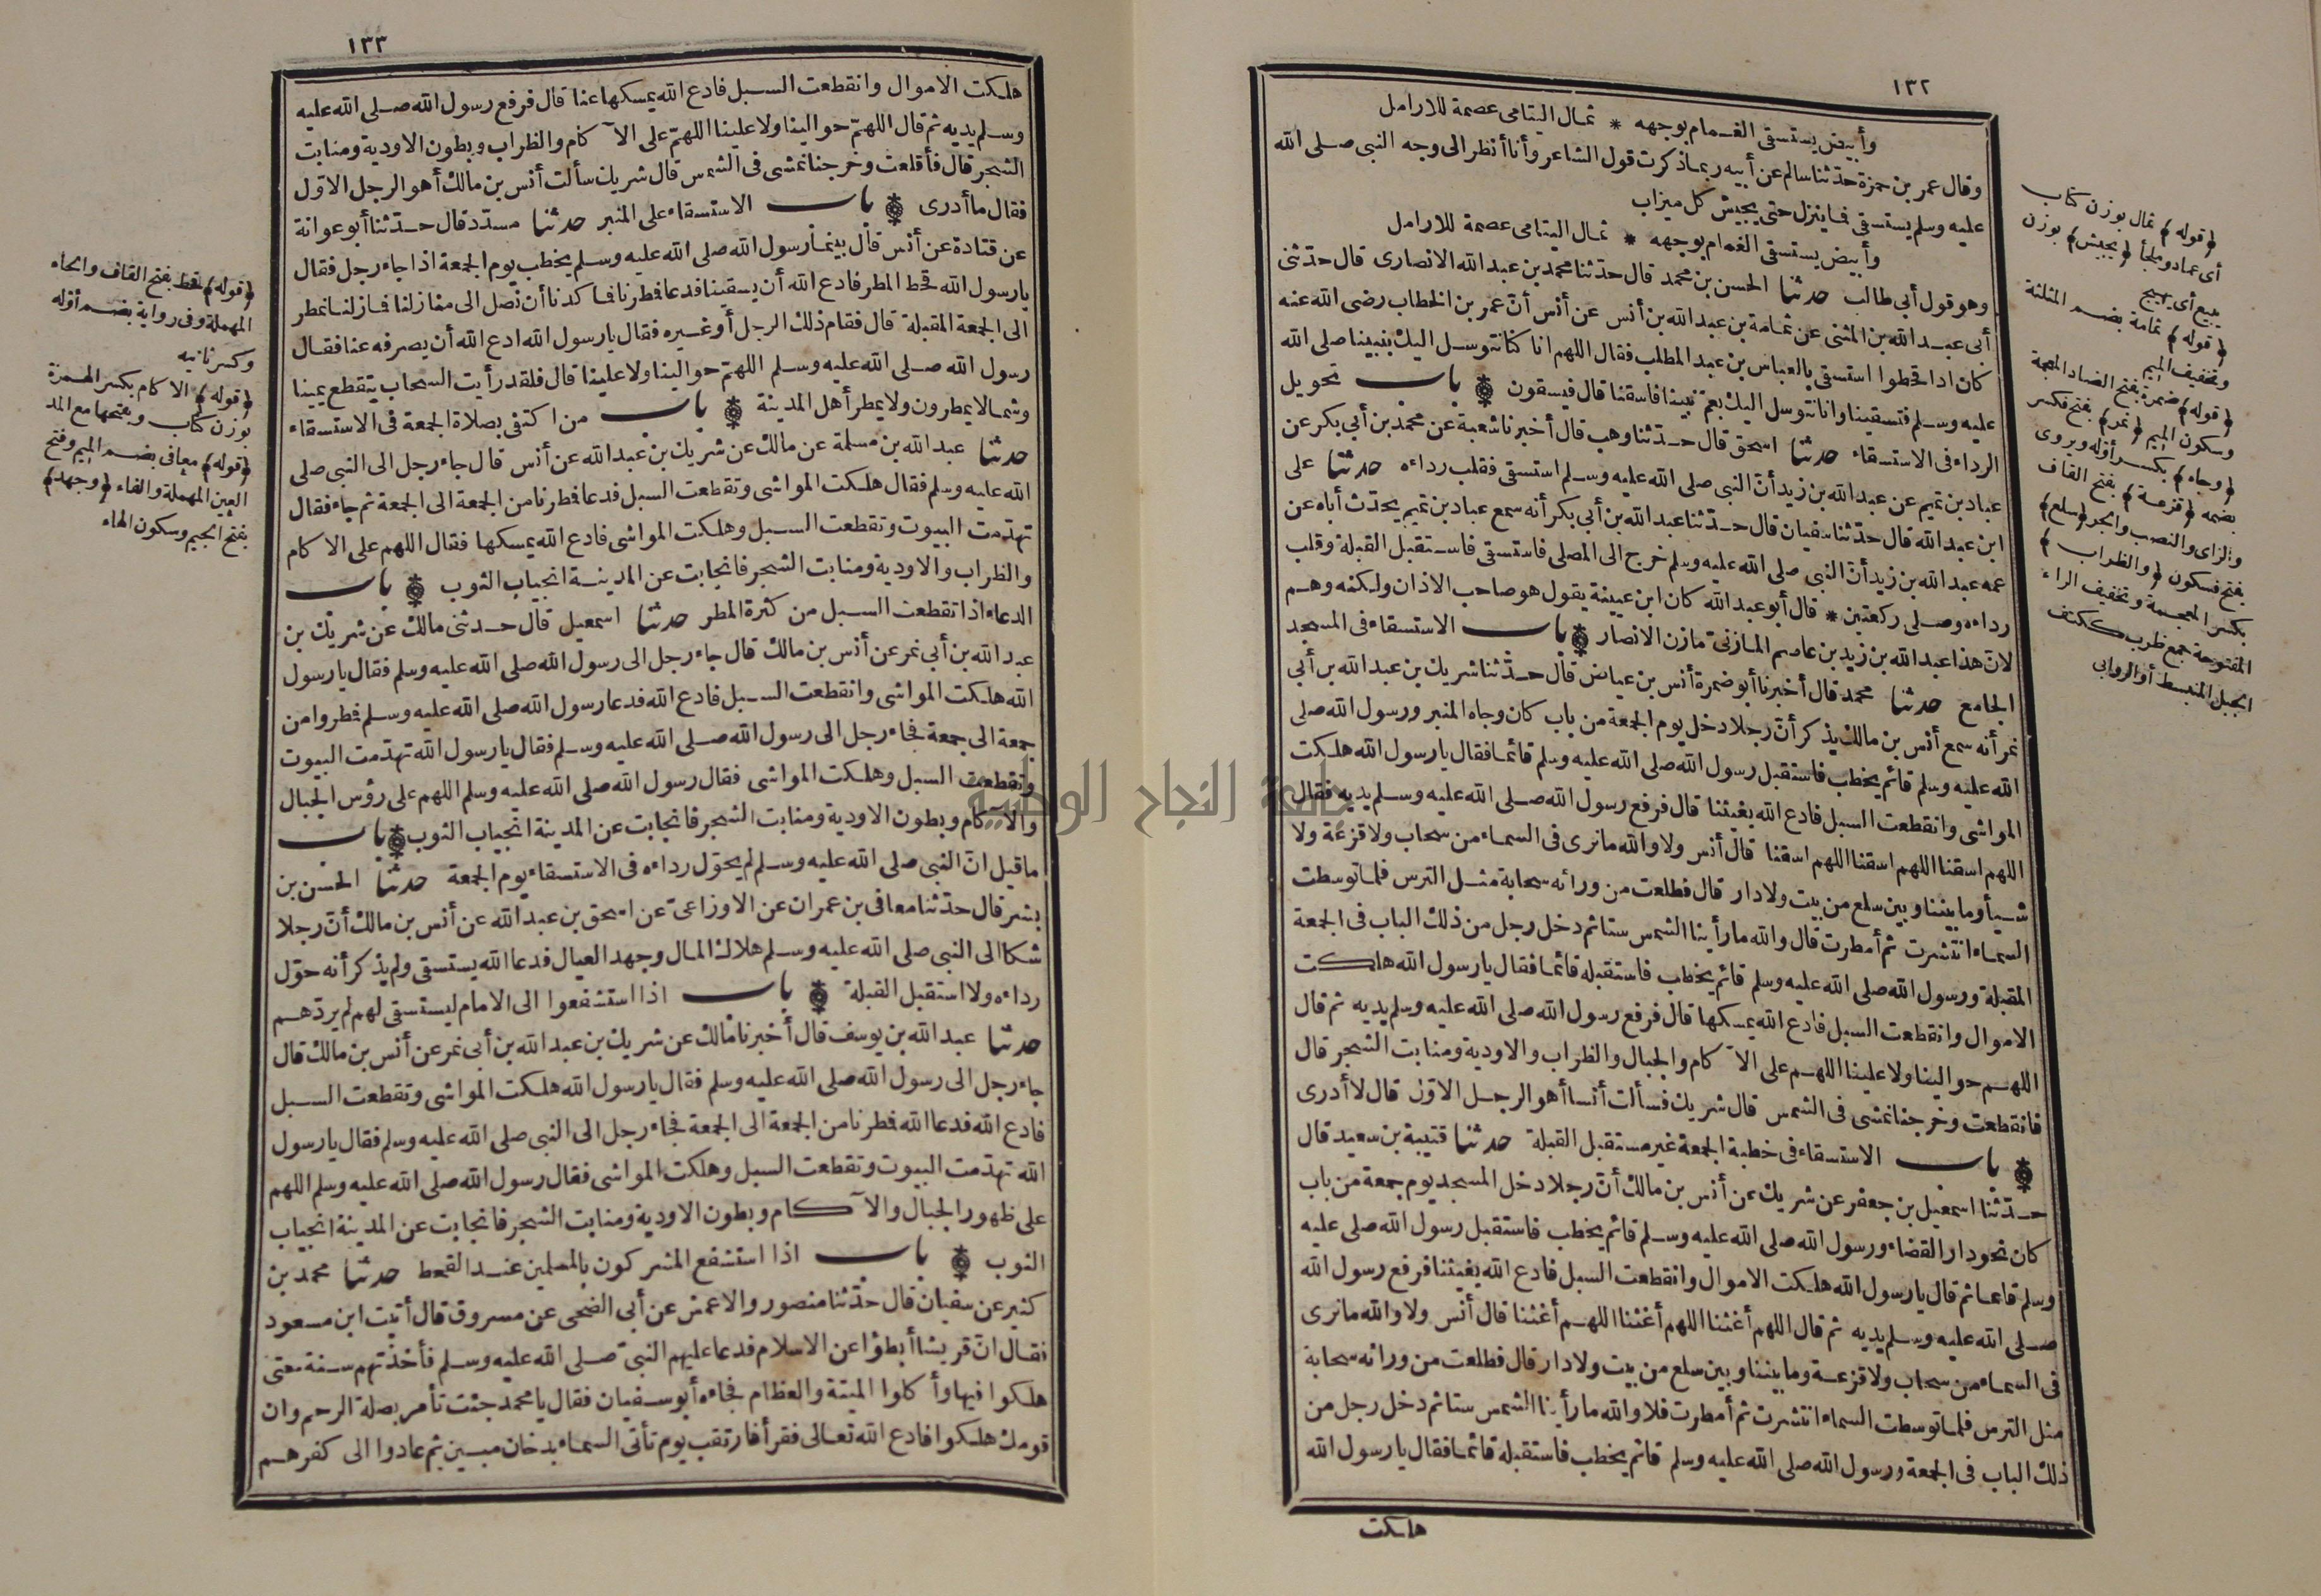 ١٣٢
وأبيض يستسقى الغمام بوجهه * ثمال اليتامى عصمة للارامل
وقال عمر بن حمزة حدّثنا سالم عن أبيه ربما ذكرت قول الشاعر وأنا أنظر الى وجه النبى صلى الله
عليه وسلم يستسقى فما ينزل حتى يجيش كل ميزاب
وأبيض يستسقى الغمام بوجهه * ثمال اليتامى عصمة للارامل
وهو قول أبى طالب حدثنا الحسن بن محمد قال حدّثنا محمد بن عبد الله الانصارى قال حدّثنى
أبى عبد الله بن المثنى عن ثمامة بن عبد الله بن أنس عن أنس أنّ عمر بن الخطاب رضى الله عنه
كان اذا قحطوا استسقى بالعباس بن عبد المطلب فقال اللهم انا كنا نتوسل اليك بنبينا صلى الله
عليه وسلم فتسقينا وانا نتوسل اليك بعمّ نبينا فاسقنا قال فيسقون باب تحويل
الرداء فى الاستسقاء حدثنا اسحق قال حدّثنا وهب قال أخبرنا شعبة عن محمد بن أبى بكر عن
عباد بن تميم عن عبد الله بن زيد أنّ النبى صلى الله عليه وسلم استسقى فقلب رداءه حدثنا على
ابن عبد الله قال حدّثنا سفيان قال حدّثنا عبد الله بن أبى بكر أنه سمع عباد بن تميم يحدّث أباه عن
عمه عبد الله بن زيد أنّ النبى صلى الله عليه وسلم خرج الى المصلى فاستسقى فاستقبل القبلة وقلب
رداءه وصلى ركعتين * قال أبو عبد الله كان ابن عيينة يقول هو صاحب الاذان ولكنه وهم
لانّ هذا عبد الله بن زيد بن عاصم المازنىّ مازن الانصار باب الاستسقاء فى المسجد
الجامع حدثنا محمد قال أخبرنا أبو ضمرة أنس بن عياض قال حدّثنا شريك بن عبد الله بن أبى
نمر أنه سمع أنس بن مالك يذكر أنّ رجلا دخل يوم الجمعة من باب كان وجاه المنبر ورسول الله صلى
الله عليه وسلم قائم يخطب فاستقبل رسول الله صلى الله عليه وسلم قائما فقال يا رسول الله هلكت
المواشى وانقطعت السبل فادع الله يغيثنا قال فرفع رسول الله صلى الله عليه وسلم يديه فقال
اللهم اسقنا اللهم اسقنا اللهم اسقنا قال أنس ولا والله ما نرى فى السماء من سحاب ولا قزعة ولا
شيأ وما بيننا وبين سلع من بيت ولا دار قال فطلعت من ورائه سحابة مثل الترس فلما توسطت
السماء انتشرت ثم أمطرت قال والله ما رأينا الشمس ستا ثم دخل رجل من ذلك الباب فى الجمعة
المقبلة ورسول الله صلى الله عليه وسلم قائم يخطب فاستقبله قائما فقال يا رسول الله هلكت
الاموال وانقطعت السبل فادع الله يمسكها قال فرفع رسول الله صلى الله عليه وسلم يديه ثم قال
اللهم حوالينا ولا علينا اللهم على الآكام والجبال والظراب والاودية ومنابت الشجر قال
فانقطعت وخرجنا نمشى فى الشمس قال شريك فسألت أنسا أهو الرجل الاوّل قال لا أدرى
باب الاستسقاء فى خطبة الجمعة غير مستقبل القبلة حدثنا قتيبة بن سعيد قال
حدّثنا اسمعيل بن جعفر عن شريك عن أنس بن مالك أنّ رجلا دخل المسجد يوم جمعة من باب
كان نحو دار القضاء ورسول الله صلى الله عليه وسلم قائم يخطب فاستقبل رسول الله صلى عليه
وسلم قائما ثم قال يا رسول الله هلكت الاموال وانقطعت السبل فادع الله يغيثنا فرفع رسول الله
صلى الله عليه وسلم يديه ثم قال اللهم أغثنا اللهم أغثنا اللهم أغثنا قال أنس ولا والله ما نرى
فى السماء من سحاب ولا قزعة وما بيننا وبين سلع من بيت ولا دار قال فطلعت من ورائه سحابة
مثل الترس فلما توسطت السماء انتشرت ثم أمطرت فلا والله ما رأينا الشمس ستا ثم دخل رجل من
ذلك الباب فى الجمعة ورسول الله صلى الله عليه وسلم قائم يخطب فاستقبله قائما فقال يا رسول الله
هلكت
(قوله) ثمال بوزن كتاب
أى عماد وملجأ (يجيش) بوزن
يبيع أى يهيج
(قوله) ثمامة بضم المثلثة
وتخفيف الميم
(قوله) ضمرة بفتح الضاد المعجمة
وسكون الميم (نمر) بفتح فكسر
(وجاه) بكسر أوّله ويروى
بضمه (قزعة) بفتح القاف
والزاى والنصب والجر (سلع)
بفتح فسكون (والظراب)
بكسر المعجمة وتخفيف الراء
المفتوحة جمع ظرب ككتف
الجبل المنبسط أو الروابى
١٣٣
هلكت الاموال وانقطعت السبل فادع الله يمسكها عنا قال فرفع رسول الله صلى الله عليه
وسلم يديه ثم قال اللهمّ حوالينا ولا علينا اللهمّ على الآكام والظراب وبطون الاودية ومنابت
الشجر قال فأقلعت وخرجنا نمشى فى الشمس قال شريك سألت أنس بن مالك أهو الرجل الاوّل
فقال ما أدرى باب الاستسقاء على المنبر حدثنا مسدّد قال حدّثنا أبو عوانة
عن قتادة عن أنس قال بينما رسول الله صلى الله عليه وسلم يخطب يوم الجمعة اذا جاء رجل فقال
يا رسول الله قحط المطر فادع الله أن يسقينا فدعا فمطرنا فما كدنا أن نصل الى منازلنا فما زلنا نمطر
الى الجمعة المقبلة قال فقام ذلك الرجل أو غيره فقال يا رسول الله ادع الله أن يصرفه عنا فقال
رسول الله صلى الله عليه وسلم اللهمّ حوالينا ولا علينا قال فلقد رأيت السحاب يتقطع يمينا
وشمالا يمطرون ولا يمطر أهل المدينة باب من اكتفى بصلاة الجمعة فى الاستسقاء
حدثنا عبد الله بن مسلمة عن مالك عن شريك بن عبد الله عن أنس قال جاء رجل الى النبى صلى
الله عليه وسلم فقال هلكت المواشى وتقطعت السبل فدعا فمطرنا من الجمعة الى الجمعة ثم جاء فقال
تهدّمت البيوت وتقطعت السبل وهلكت المواشى فادع الله يمسكها فقال اللهم على الاكام
والظراب والاودية ومنابت الشجر فانجابت عن المدينة انجياب الثوب باب
الدعاء اذا تقطعت السبل من كثرة المطر حدثنا اسمعيل قال حدثنى مالك عن شريك بن
عبد الله بن أبى نمر عن أنس بن مالك قال جاء رجل الى رسول الله صلى الله عليه وسلم فقال يا رسول
الله هلكت المواشى وانقطعت السبل فادع الله فدعا رسول الله صلى الله عليه وسلم فمطروا من
جمعة الى جمعة فجاء رجل الى رسول الله صلى الله عليه وسلم فقال يا رسول الله تهدّمت البيوت
وتقطعت السبل وهلكت المواشى فقال رسول الله صلى الله عليه وسلم اللهم على رؤس الجبال
والآكام وبطون الاودية ومنابت الشجر فانجابت عن المدينة انجياب الثوب باب
ما قيل انّ النبى صلى الله عليه وسلم لم يحوّل رداءه فى الاستسقاء يوم الجمعة حدثنا الحسن بن
بشر قال حدّثنا معافى بن عمران عن الاوزاعىّ عن اسحق بن عبد الله عن أنس بن مالك أنّ رجلا
شكا الى النبى صلى الله عليه وسلم هلاك المال وجهد العيال فدعا الله يستسقى ولم يذكر أنه حوّل
رداءه ولا استقبل القبلة باب اذا استشفعوا الى الامام ليستسقى لهم لم يردّهم
حدثنا عبد الله بن يوسف قال أخبرنا مالك عن شريك بن عبد الله بن أبى نمر عن أنس بن مالك قال
جاء رجل الى رسول الله صلى الله عليه وسلم فقال يا رسول الله هلكت المواشى وتقطعت السبل
فادع الله فدعا الله فمطرنا من الجمعة الى الجمعة فجاء رجل الى النبى صلى الله عليه وسلم فقال يا رسول
الله تهدّمت البيوت وتقطعت السبل وهلكت المواشى فقال رسول الله صلى الله عليه وسلم اللهم
على ظهور الجبال والآكام وبطون الاودية ومنابت الشجر فانجابت عن المدينة انجياب
الثوب باب اذا استشفع المشركون بالمسلمين عند القحط حدثنا محمد بن
كثير عن سفيان قال حدّثنا منصور والاعمش عن أبى الضحى عن مسروق قال أتيت ابن مسعود
فقال انّ قريشا أبطؤا عن الاسلام فدعا عليهم النبىّ صلى الله عليه وسلم فأخذتهم سنة حتى
هلكوا فيها وأكلوا الميتة والعظام فجاءه أبو سفيان فقال يا محمد جئت تأمر بصلة الرحم وان
قومك هلكوا فادع الله تعالى فقرأ فارتقب يوم تأتى السماء بدخان مبين ثم عادوا الى كفرهم
(قوله) قحط بفتح القاف والحاء
المهملة وفى رواية بضم أوّله
وكسر ثانيه
(قوله) الاكام بكسر الهمزة
بوزن كتاب وبفتحها مع المد
(قوله) معافى بضم الميم وفتح
العين المهملة والفاء (وجهد)
بفتح الجيم وسكون الهاء
جامعة النجاح الوطنية